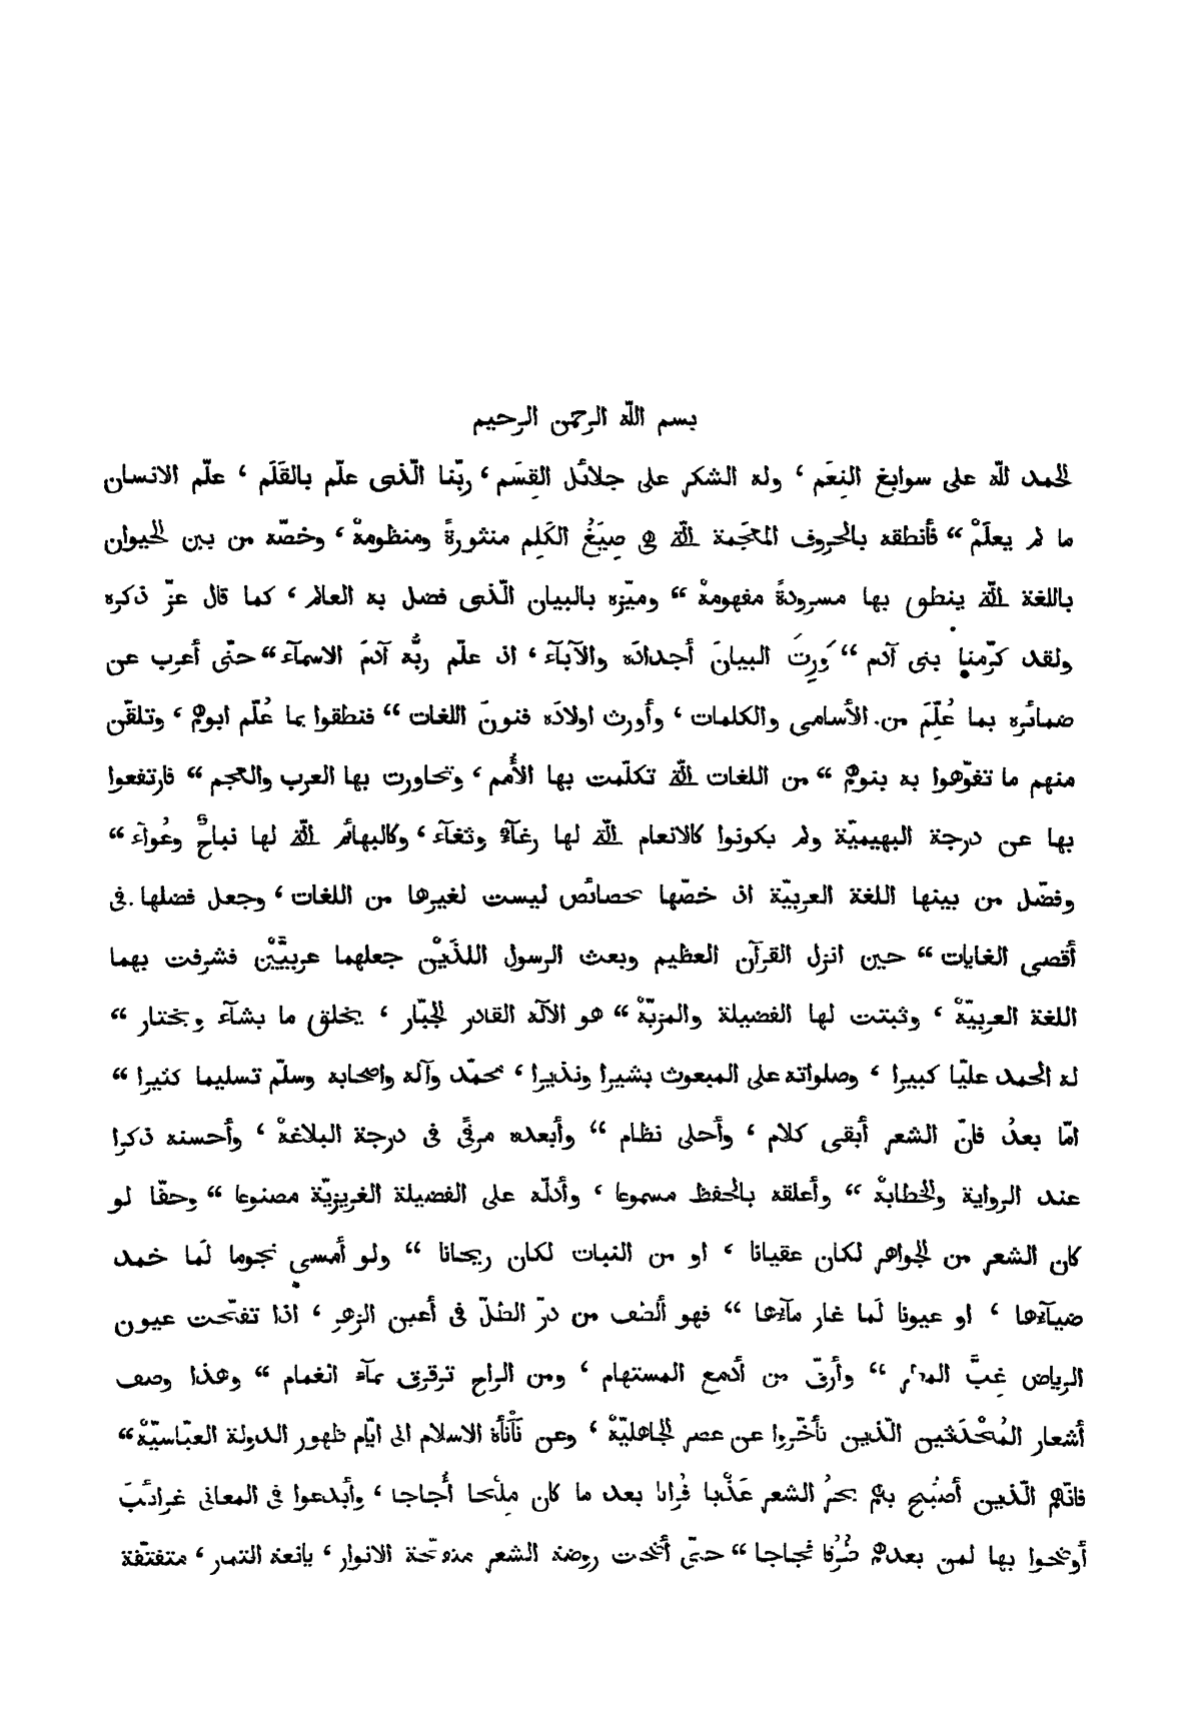 بسم اللّه الرحمن الرحيم
الحمد للّه على سوابغ النِعَم ، وله الشكر على جلائل القِسَم ، ربّنا الّذى علّم بالقَلَم ، علّم الانسان
ما لم يعلَمْ “ فأنطقه بالحروف المعجَمة الّتى هى صِيَغُ الكَلِم منثورةً ومنظومةْ ، وخصّه من بين الحيوان
باللغة الّتى ينطق بها مسرودةً مفهومةْ “ وميّزه بالبيان الّذى فضل به العالم ، كما قال عزّ ذكره
ولقد كرّمنا بنى آدم “ وَرِثَ البيانَ أجدادَه والآبآءَ ، اذ علّم ربُّه آدمَ الاسمآءَ “ حتّى أعرب عن
ضمائره بما عُلِّمَ من الأسامى والكلمات ، وأورث اولادَه فنونَ اللغات “ فنطقوا بما عُلّم ابوهم ، وتلقّن
منهم ما تفوّهوا به بنوهم “ من اللغات الّتى تكلّمت بها الأُمم ، وتحاورت بها العرب والعجم “ فارتفعوا
بها عن درجة البهيميّة ولم يكونوا كالانعام الّتى لها رغآءٌ وثغآء ، وكالبهائم الّتى لها نباحٌ وعُوآء “
وفضّل من بينها اللغة العربيّة اذ خصّها بخصائص ليست لغيرها من اللغات ، وجعل فضلها فى
أقصى الغايات “ حين انزل القرآن العظيم وبعث الرسول اللذَيْن جعلهما عربيَّيْن فشرفت بهما
اللغة العربيّةْ ، وثبتت لها الفضيلة والمزيّةْ “ هو الآله القادر الجبّار ، يخلق ما يشآء ويختار “
له الحمد عليّا كبيرا ، وصلواته على المبعوث بشيرا ونذيرا ، محمّد وآله واصحابه وسلّم تسليما كثيرا “
امّا بعدُ فانّ الشعر أبقى كلام ، وأحلى نظام “ وأبعده مرقًى فى درجة البلاغةْ ، وأحسنه ذكرا
عند الرواية والخطابةْ “ وأعلقه بالحفظ مسموعا ، وأدلّه على الفضيلة الغريزيّة مصنوعا “ وحقّا لو
كان الشعر من الجواهر لكان عقيانا ، او من النبات لكان ريحانا “ ولو أمسى نجوما لَما خمد
ضيآءها ، او عيونا لَما غار مآءها “ فهو ألطف من درّ الطلّ فى أعين الزهر ، اذا تفتّحت عيون
الرياض غِبَّ المطر “ وأرقّ من أدمع المستهام ، ومن الراح ترقرق بمآء الغمام “ وهذا وصف
أشعار المُحْدَثين الّذين تأخّروا عن عصر الجاهليّةْ ، وعن نَأْنَأة الاسلام الى ايّام ظهور الدولة العبّاسيّةْ “
فانّهم الّذين أصبح بهم بحرُ الشعر عَذْبا فُراتا بعد ما كان مِلْحا أُجاجا ، وأبدعوا فى المعانى غرائبَ
أوضحوا بها لمن بعدهم طُرُقا فجاجا “ حتّى أضحت روضة الشعر متفتّحة الانوار ، يانعة الثمر ، متفتّقة